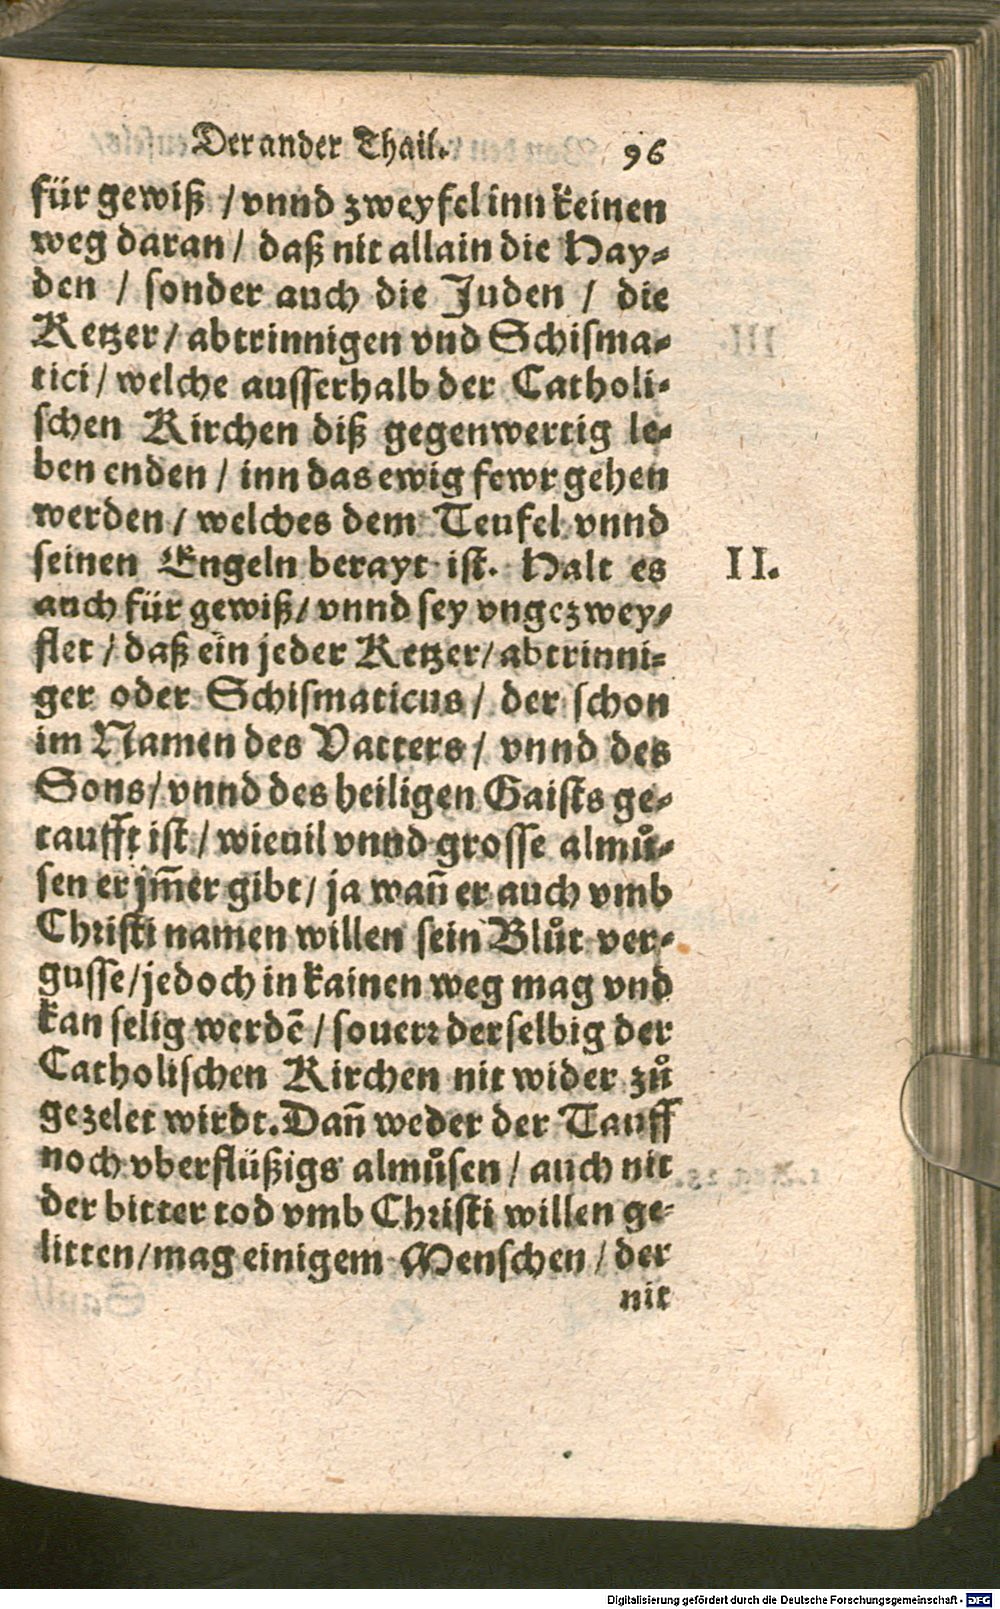 Der ander Thail. 96
für gewiß / vnnd zweyfel inn keinen
weg daran / daß nit allain die Hay-
den / sonder auch die Juden / die
Ketzer / abtrinnigen vnd Schisma-
tici / welche ausserhalb der Catholi-
schen Kirchen diß gegenwertig le-
ben enden / inn das ewig fewr gehen
werden / welches dem Teufel vnnd
seinen Engeln berayt ist. Halt es II.
auch für gewiß / vnnd sey vngezwey-
flet / daß ein jeder Ketzer / abtrinni-
ger oder Schismaticus / der schon
im Namen des Vatters / vnnd des
Sons / vnnd des heiligen Gaists ge-
taufft ist / wieuil vnnd grosse almů-
sen er jm̃er gibt / ja wañ er auch vmb
Christi namen willen sein Blůt ver-
gusse / jedoch in kainen weg mag vnd
kan selig werdẽ / souerr derselbig der
Catholischen Kirchen nit wider zů
gezelet wirdt. Dañ weder der Tauff
noch vberflüßigs almůsen / auch nit
der bitter tod vmb Christi willen ge-
litten / mag einigem Menschen / der
nit
Digitalisierung gefördert durch die Deutsche Forschungsgemeinschaft - DFG